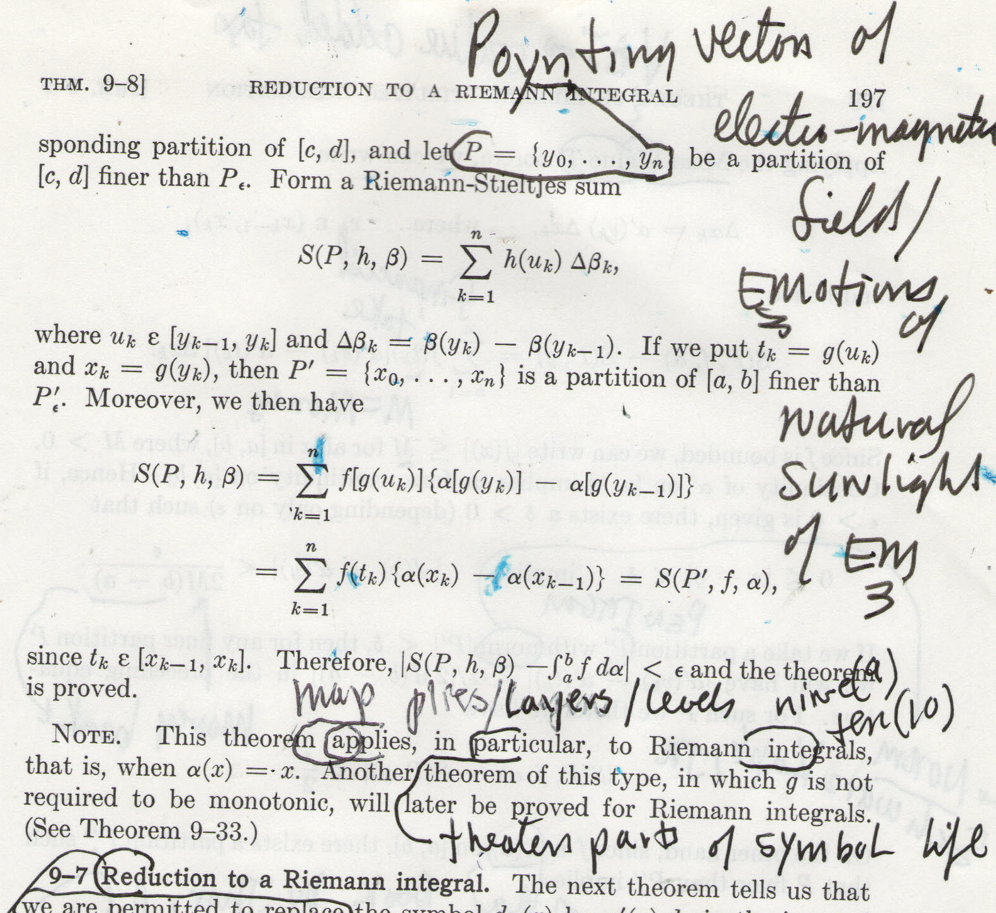 Poynting vector of
THM. 9–8] REDUCTION TO A RIEMANN INTEGRAL 197
electro-magnetic
sponding partition of [c, d], and let P = {y₀, . . . , yₙ} be a partition of
[c, d] finer than P_ϵ. Form a Riemann-Stieltjes sum
field/
S(P, h, β) = ∑_{k=1}^{n} h(u_k) Δβ_k,
Emotions
of
where u_k ε [y_{k−1}, y_k] and Δβ_k = β(y_k) − β(y_{k−1}). If we put t_k = g(u_k)
and x_k = g(y_k), then P′ = {x₀, . . . , xₙ} is a partition of [a, b] finer than
P′_ϵ. Moreover, we then have
natural
S(P, h, β) = ∑_{k=1}^{n} f[g(u_k)]{α[g(y_k)] α[g(y_{k−1})]}
sunlight
of EM
3
= ∑_{k=1}^{n} f(t_k){α(x_k) − α(x_{k−1})} = S(P′, f, α),
since t_k ε [x_{k−1}, x_k]. Therefore, |S(P, h, β) − ∫_a^b f dα| < ϵ and the theorem
is proved.
map plies/Layers/levels nine(9)
ten(10)
NOTE. This theorem applies, in particular, to Riemann integrals,
that is, when α(x) = x. Another theorem of this type, in which g is not
required to be monotonic, will later be proved for Riemann integrals.
(See Theorem 9–33.)
part of symbol life
9–7 Reduction to a Riemann integral. The next theorem tells us that
we are permitted to replace the symbol